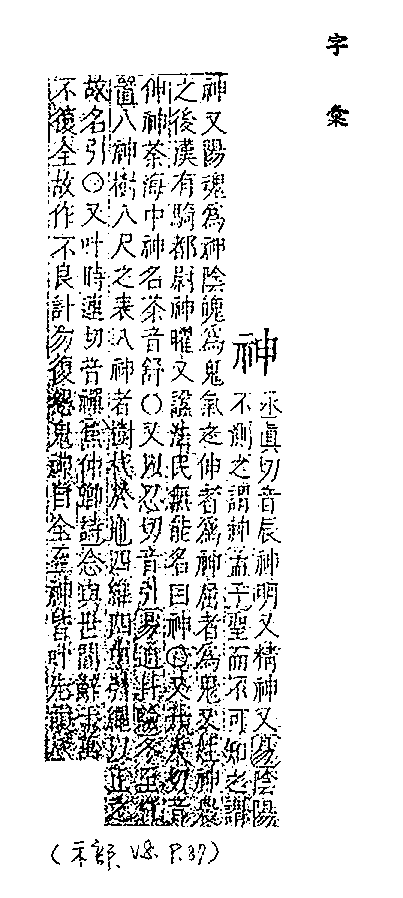 字彙
神
丞眞切音辰神明又精神又易陰陽
不測之謂神孟子聖而不可知之謂
神又陽魂爲神陰魄爲鬼氣之伸者爲神屈者爲鬼又姓神農
之後漢有騎都尉神曜又諡法民無能名曰神〇又
伸神荼海中神名荼音舒〇又以忍切音引易通卦驗冬至
置八神樹八尺之表八神者樹杙於地四維四引繩以正之
故名引〇又叶時連切音禪焦仲卿詩念與世間辭千萬
不復全故作不良計勿復怨鬼神自全至神皆叶先韻
(示部、V8. P.37)